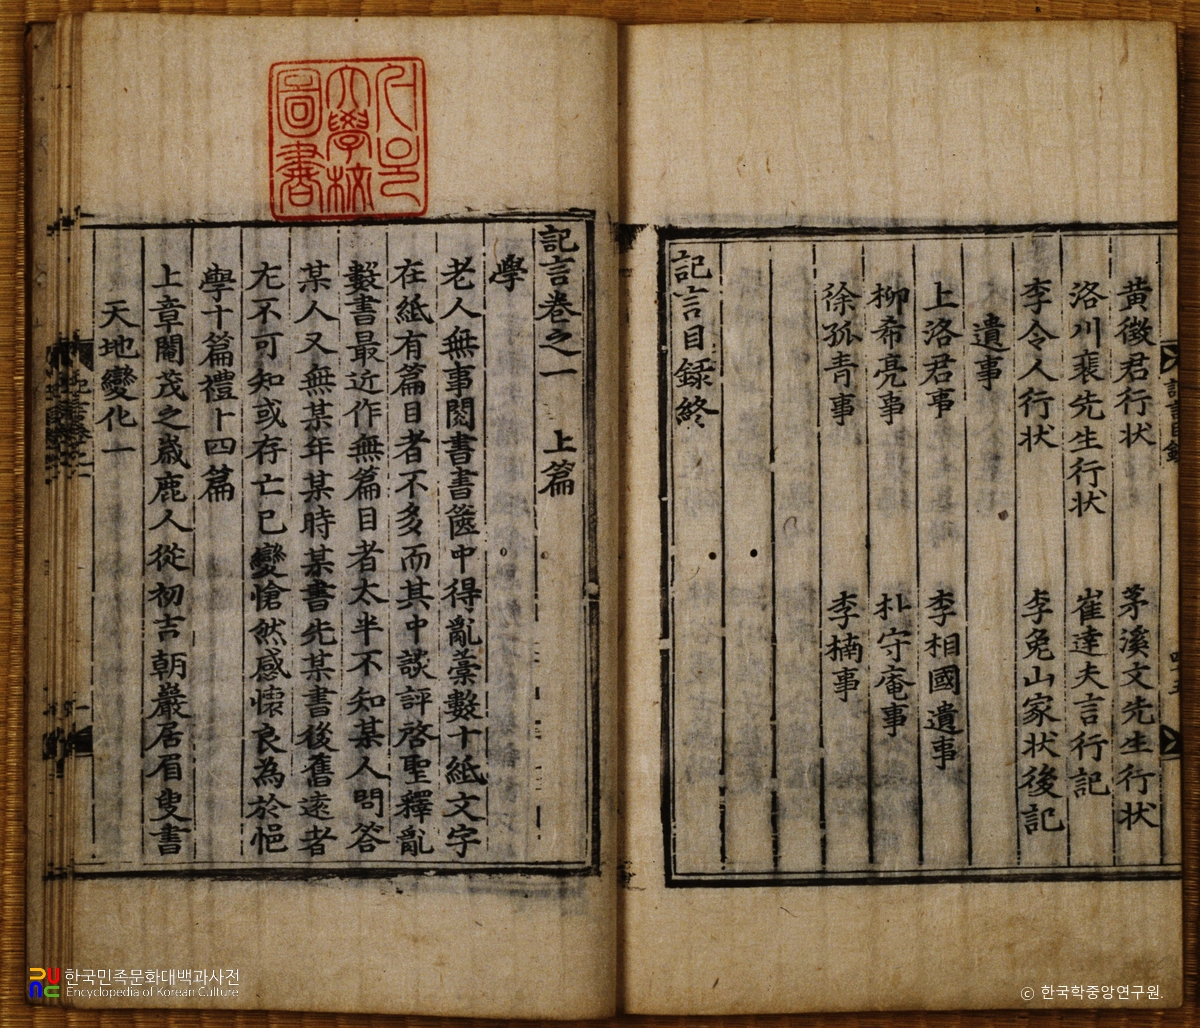 黃徵君行狀 茅溪文先生行狀
洛川裵先生行狀 崔達夫言行記
李令人行狀 李兔山家狀後記
遺事
上洛君事 李相國遺事
柳希亮事 朴守庵事
徐孤青事 李楠事
記言目録終
記言卷之一 上篇
學
老人無事閱書書篋中得亂藁數十紙文字
在紙有篇目者不多而其中談評啓聖釋亂
數書最近作無篇目者太半不知某人問答
某人又無某年某時某書先某書後舊遠者
尤不可知或存亡已變愴然感懷良為於悒
學十篇禮十四篇
上章閹茂之歲鹿人從初吉朝巖居眉叟書
天地變化一
大學校
圖書
한국민족문화대백과사전
Encyclopedia of Korean Culture
© 한국학중앙연구원.